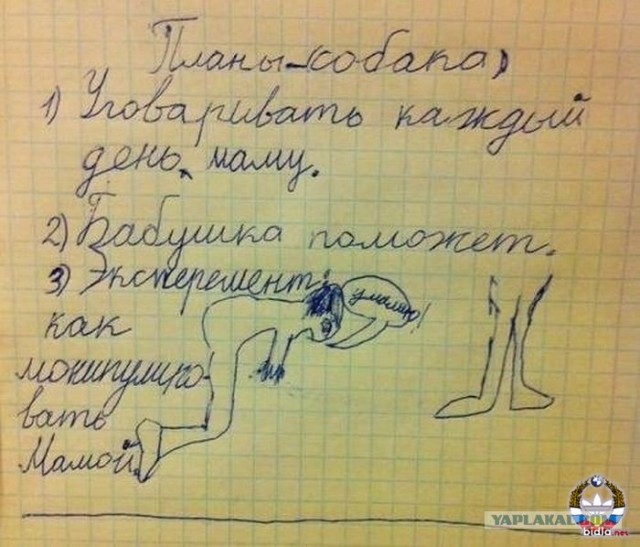 Планы-(собака)
1) Уговаривать каждый
день маму.
2) Бабушка поможет.
3) Эксперемент:
умоляю!
как
монипулиро-
вать
Мамой.
YAPLAKAL.COM
bidla.net